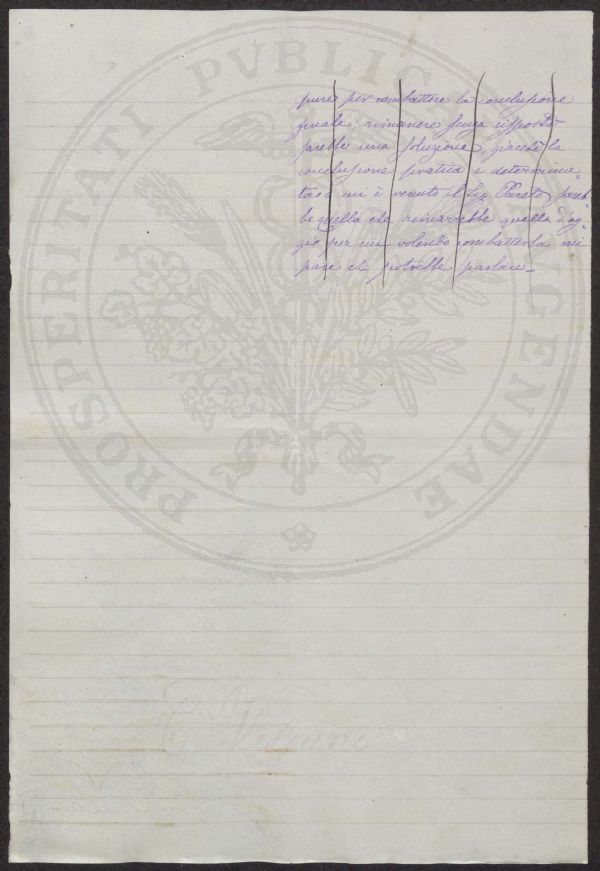 PROSPERITATI PVBLICAE AVGENDAE
pure per combattere la conclusione
finale; rimanere senza risposta
sarebbe una soluzione, giacchè la
conclusione pratica e determina-
ta a cui è venuto il Sig. Pareto sareb
be quella che rimarrebbe quella d'og-
gi e per cui volendo combatterla mi
pare che potrebbe parlare_